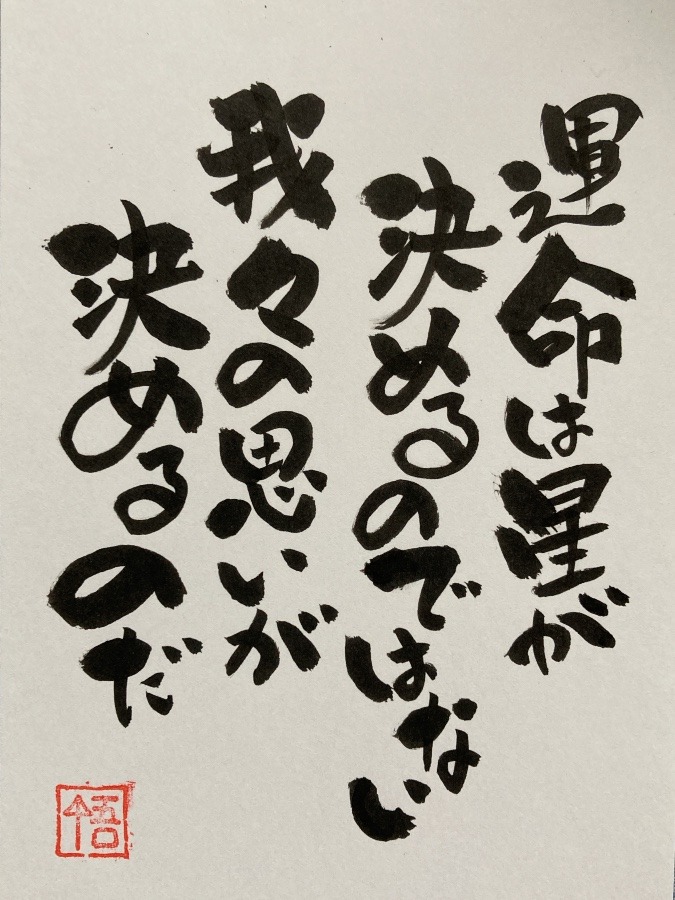 運命は星が
決めるのではない
我々の思いが
決めるのだ
悟